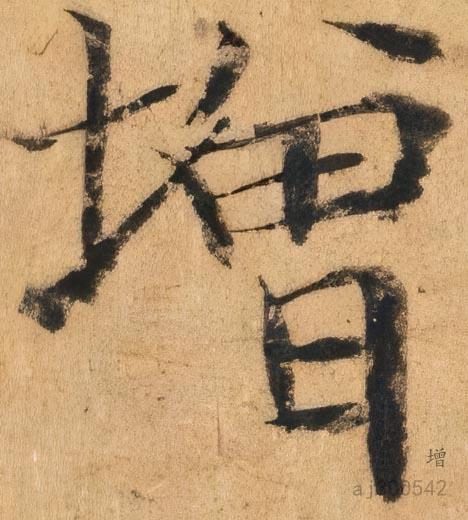 增
增
aj300542